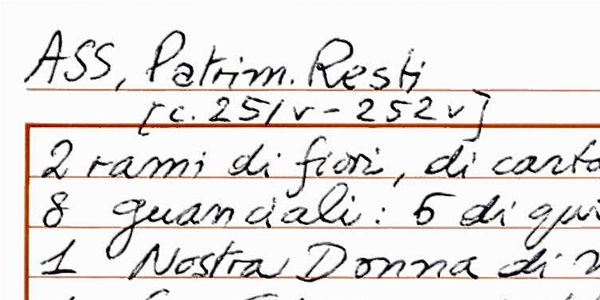 ASS, Patrim. Resti
[c. 251v - 252v]
2 rami di fiori, di carta
8 guanciali: 6 di
1 Nostra Donna di